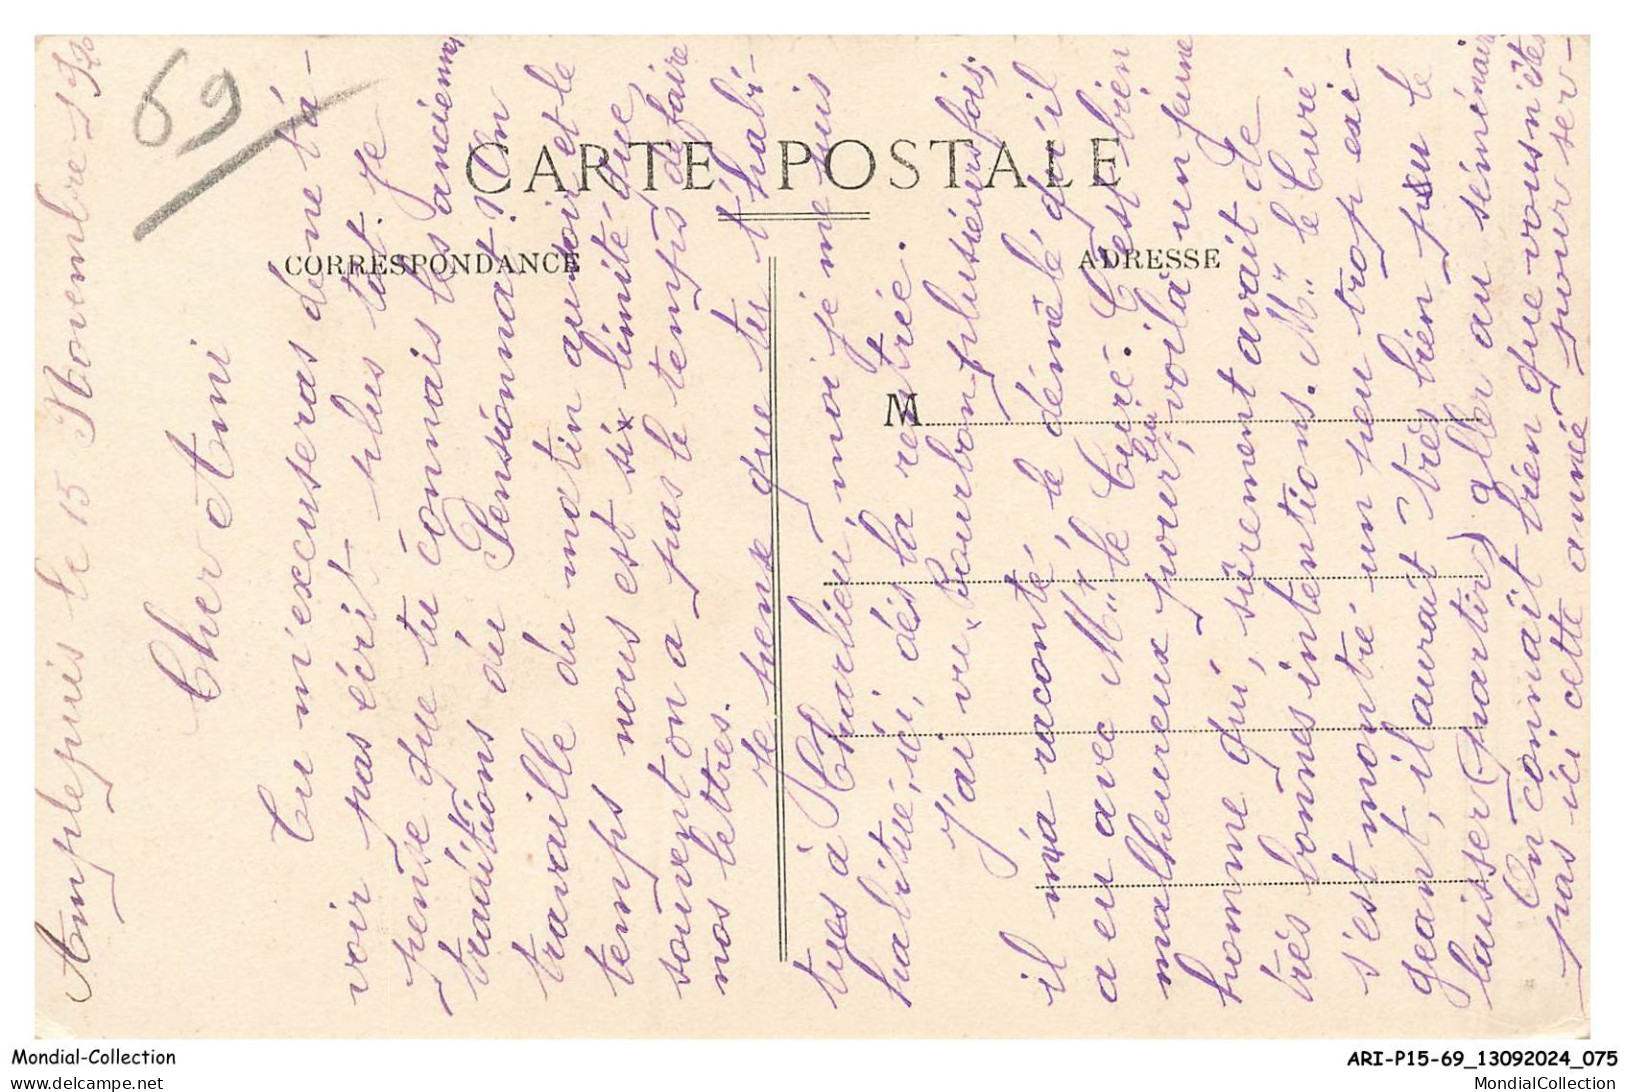 69
CARTE POSTALE
CORRESPONDANCE
ADRESSE
M
Amplepuis le 15 Novembre 19
Cher Ami
Tu m'excuseras de ne t'a-
voir pas écrit plus tôt. Je
pense que tu connais les anciennes
traditions du Pensionnat! On
travaille du matin au soir et le
temps nous est si limité que
souvent on a pas le temps de faire
nos lettres.
Je pense que tu t'habi-
tues à Charlieu, moi je me suis
habitué, ici, dès la rentrée.
J'ai vu Bourbon plusieurs fois,
il m'a raconté, le démêlé qu'il
a eu avec Mr le Curé. C'est bien
malheureux pour lui, voilà un jeune
homme qui, sûrement avait de
très bonnes intentions. Mr le Curé
s'est montré un peu trop exi-
geant, il aurait très bien pu le
laisser (partir) aller au séminaire
On connaît bien que vous n'êtes
pas ici cette année pour ser-
Mondial-Collection
ARI-P15-69_13092024_075
delcampe.net
MondialCollection